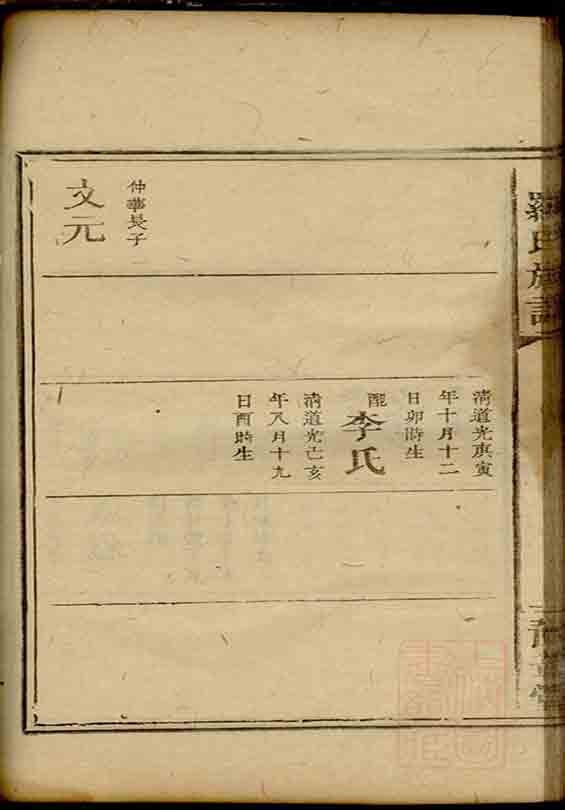 羅氏族譜
清道光庚寅
年十月十二
日卯時生
配
李氏
清道光己亥
年八月十九
日酉時生
仲華長子
文元